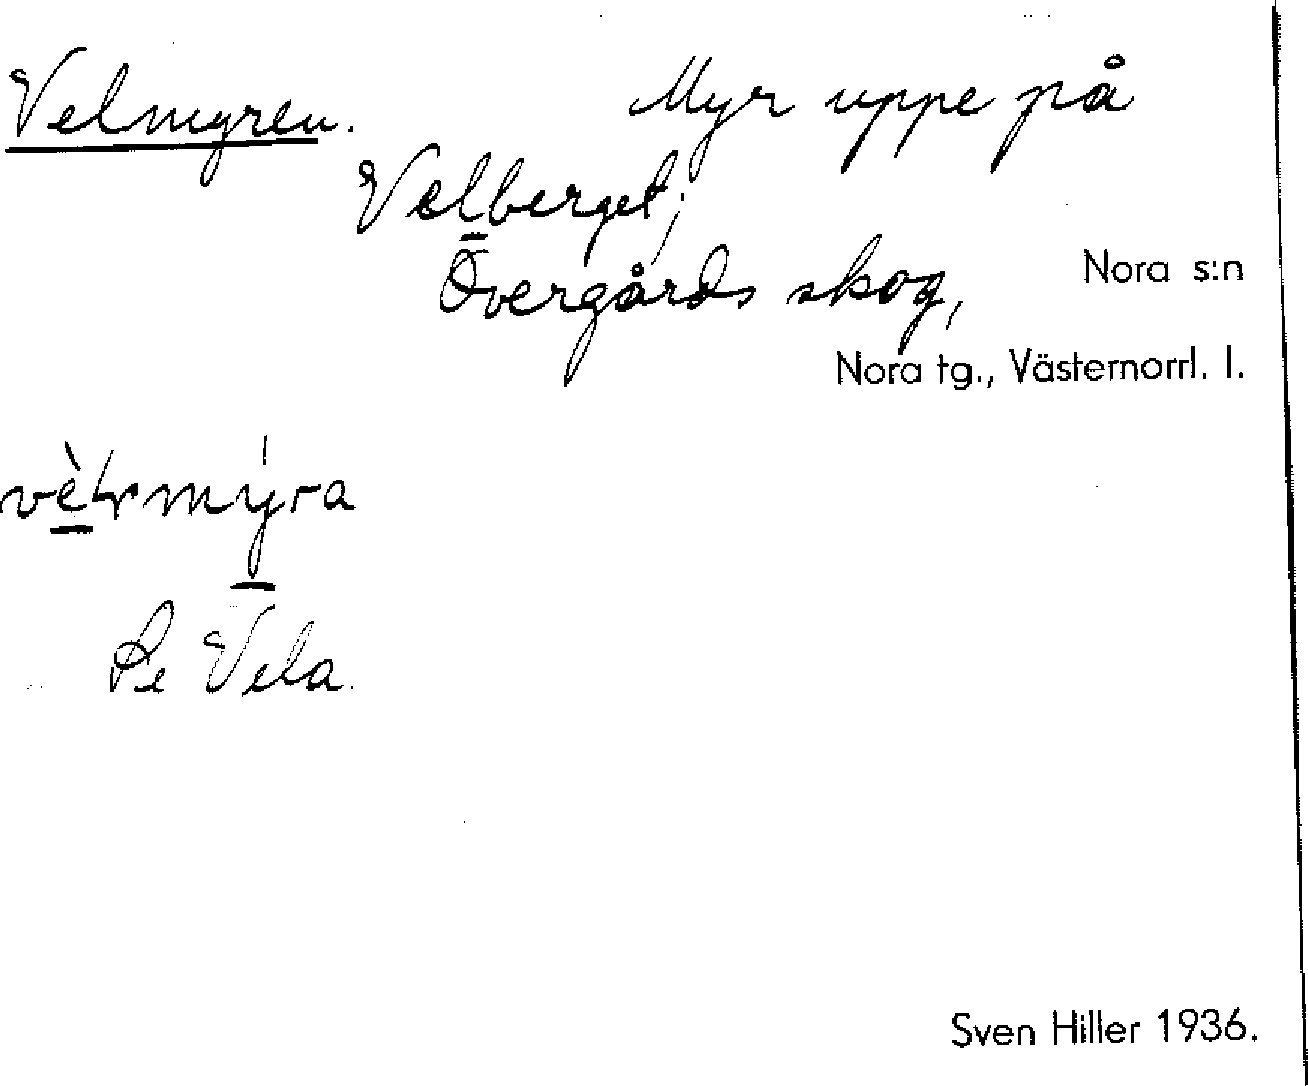 Velmyren. Myr uppe på
Velberget,
Övergårds skog, Nora s:n
Nora tg., Västernorrl. l.
Se Vela.
Sven Hiller 1936.